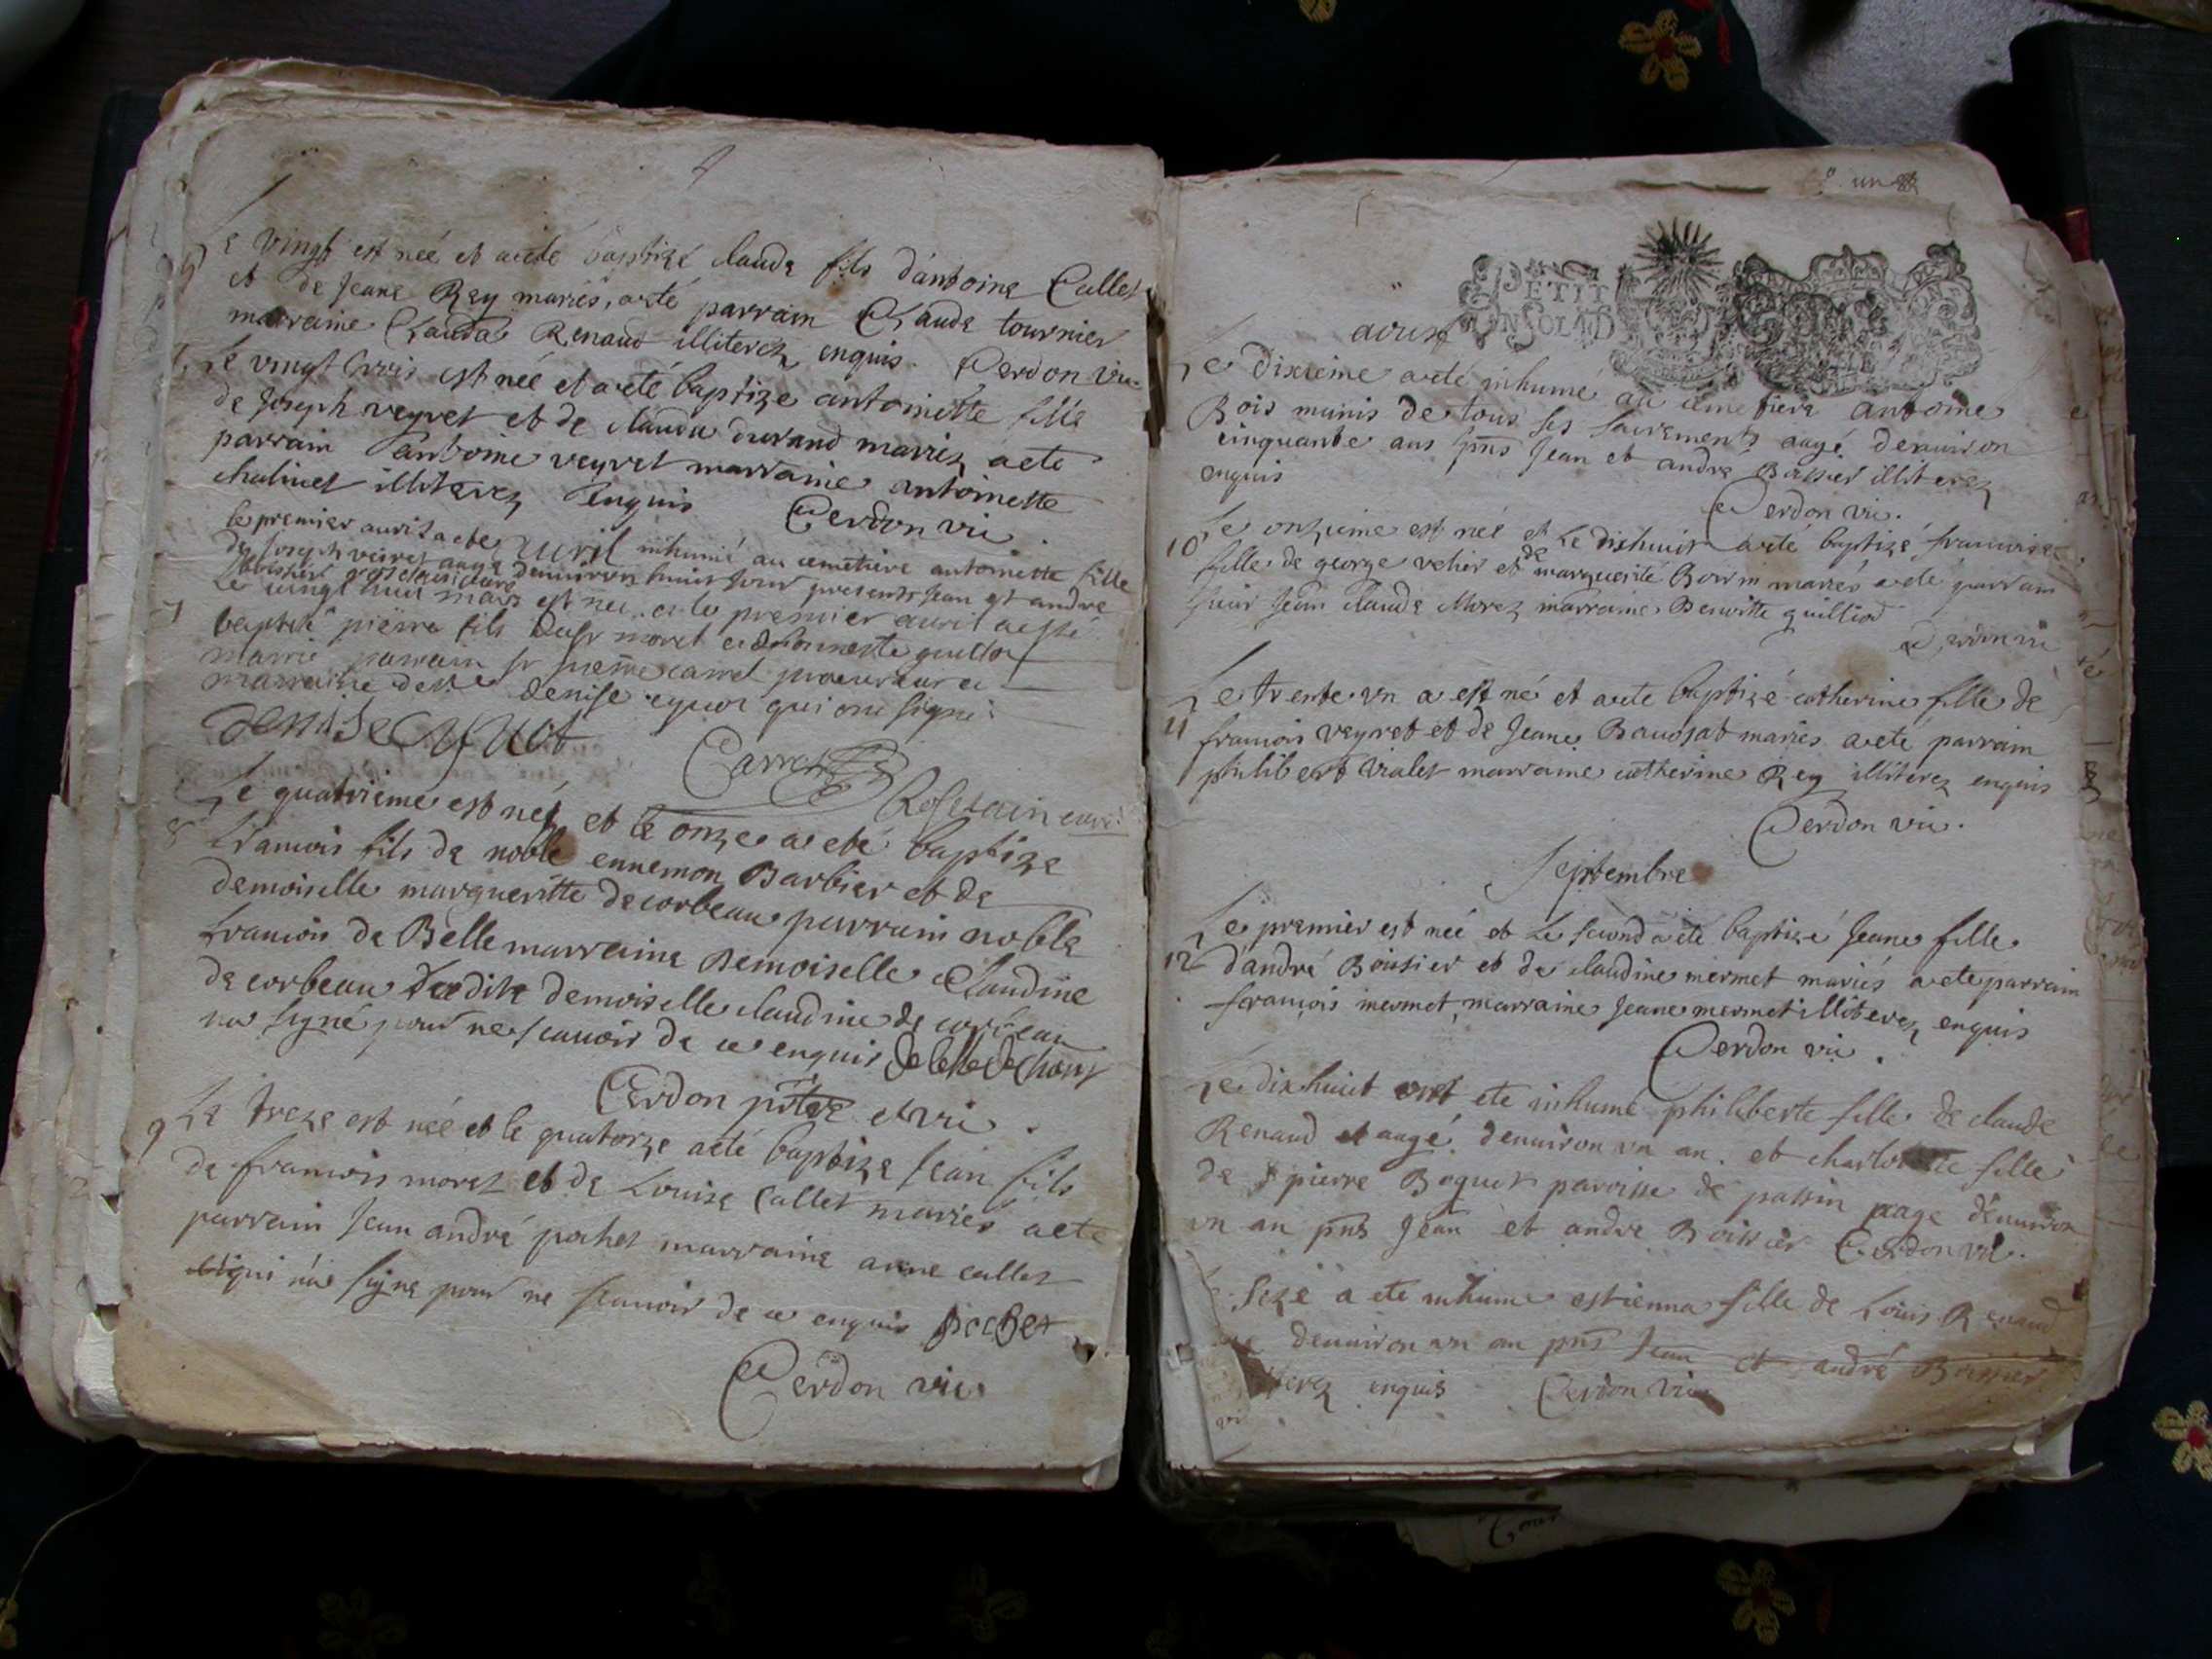 5 Le vingt est née et a eté baptizé claude fils d'antoine Callet
et de Jeane Rey mariés, a eté parrain Claude tournier
marraine Clauda Renaud illiterez enquis. Cerdon vic.
Le vingt trois est née et a eté baptize antoinette fille
de Joseph veyret et de clauda durand mariez a ete
parrain antoine veyret marraine antoinette
chalinet illiterez Enquis Cerdon vic.
avril
le premier auril a ete inhumé au cemetiere antoinette fille
de Joseph veiret aagé denuiron huit jour presents Jean et andre
7 Le vingt huit mars est né, et le premier auril a esté
baptisé pierre fils du sr moret et
marié parrain sr pierre carret procureur et
marraine delle denise cyuot qui ont signé
denise Cyuot
Carret
Roselain curé
8 Le quatrieme est néz et le onze a eté baptize
francois fils de noble ennemon Barbier et de
demoiselle margueritte de corbeau parrain noble
francois de Belle marraine Demoiselle Claudine
de corbeau Ladite demoiselle claudine de corbeau
na signé pour ne scauoir de ce enquis
Cerdon ptre et vic.
9 Le treze est née et le quatorze a eté baptize Jean fils
de francois moret et de Louise Callet mariés a ete
parrain Jean andré pochet marraine anne callet
qui n'a signe pour ne scauoir de ce enquis pochet
Cerdon vic.
un
PETIT
aoust
Le dixieme a eté inhumé au cimetiere antoine
Bois munis de tous ses sacrements aagé denuiron
cinquante ans pnts Jean et andré Boissier illiterez
enquis
Cerdon vic.
10 Le onzieme est née et Le dixhuit a eté baptizé francoise
fille de george velier et de marguerité Boirin mariés a eté parrain
sieur Jean claude Morez marraine Benoitte guilliod
Cerdon vic
11 Le trente un a est né et a ete baptizé catherine fille de
francois veyret et de Jeane Baudsat mariés a ete parrain
philibert vialet marraine catherine Rey illiterez enquis
Cerdon vic.
Septembre
12 Le premier est née et Le second a eté baptizé Jeane fille
d'andré Boisier et de claudine mermet mariés a ete parrain
francois mermet, marraine Jeane mermet illiterez enquis
Cerdon vic.
Le dixhuit ont ete inhumé philiberte fille de claude
Renaud aagé denuiron vn an. et charlotte fille
de pierre Boquet paroisse de passin aage denuiron
vn an pnts Jean et andre Boissier Cerdon vic.
seze a ete inhume estienna fille de Louis Renaud
denuiron vn an pnts Jean et andré Boissier
enquis Cerdon vic